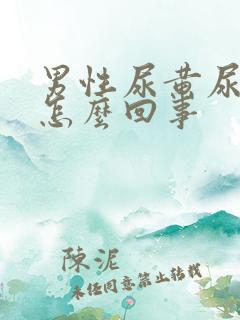 男性尿黄尿
怎麼回事
陳泥
未经同意禁止转载